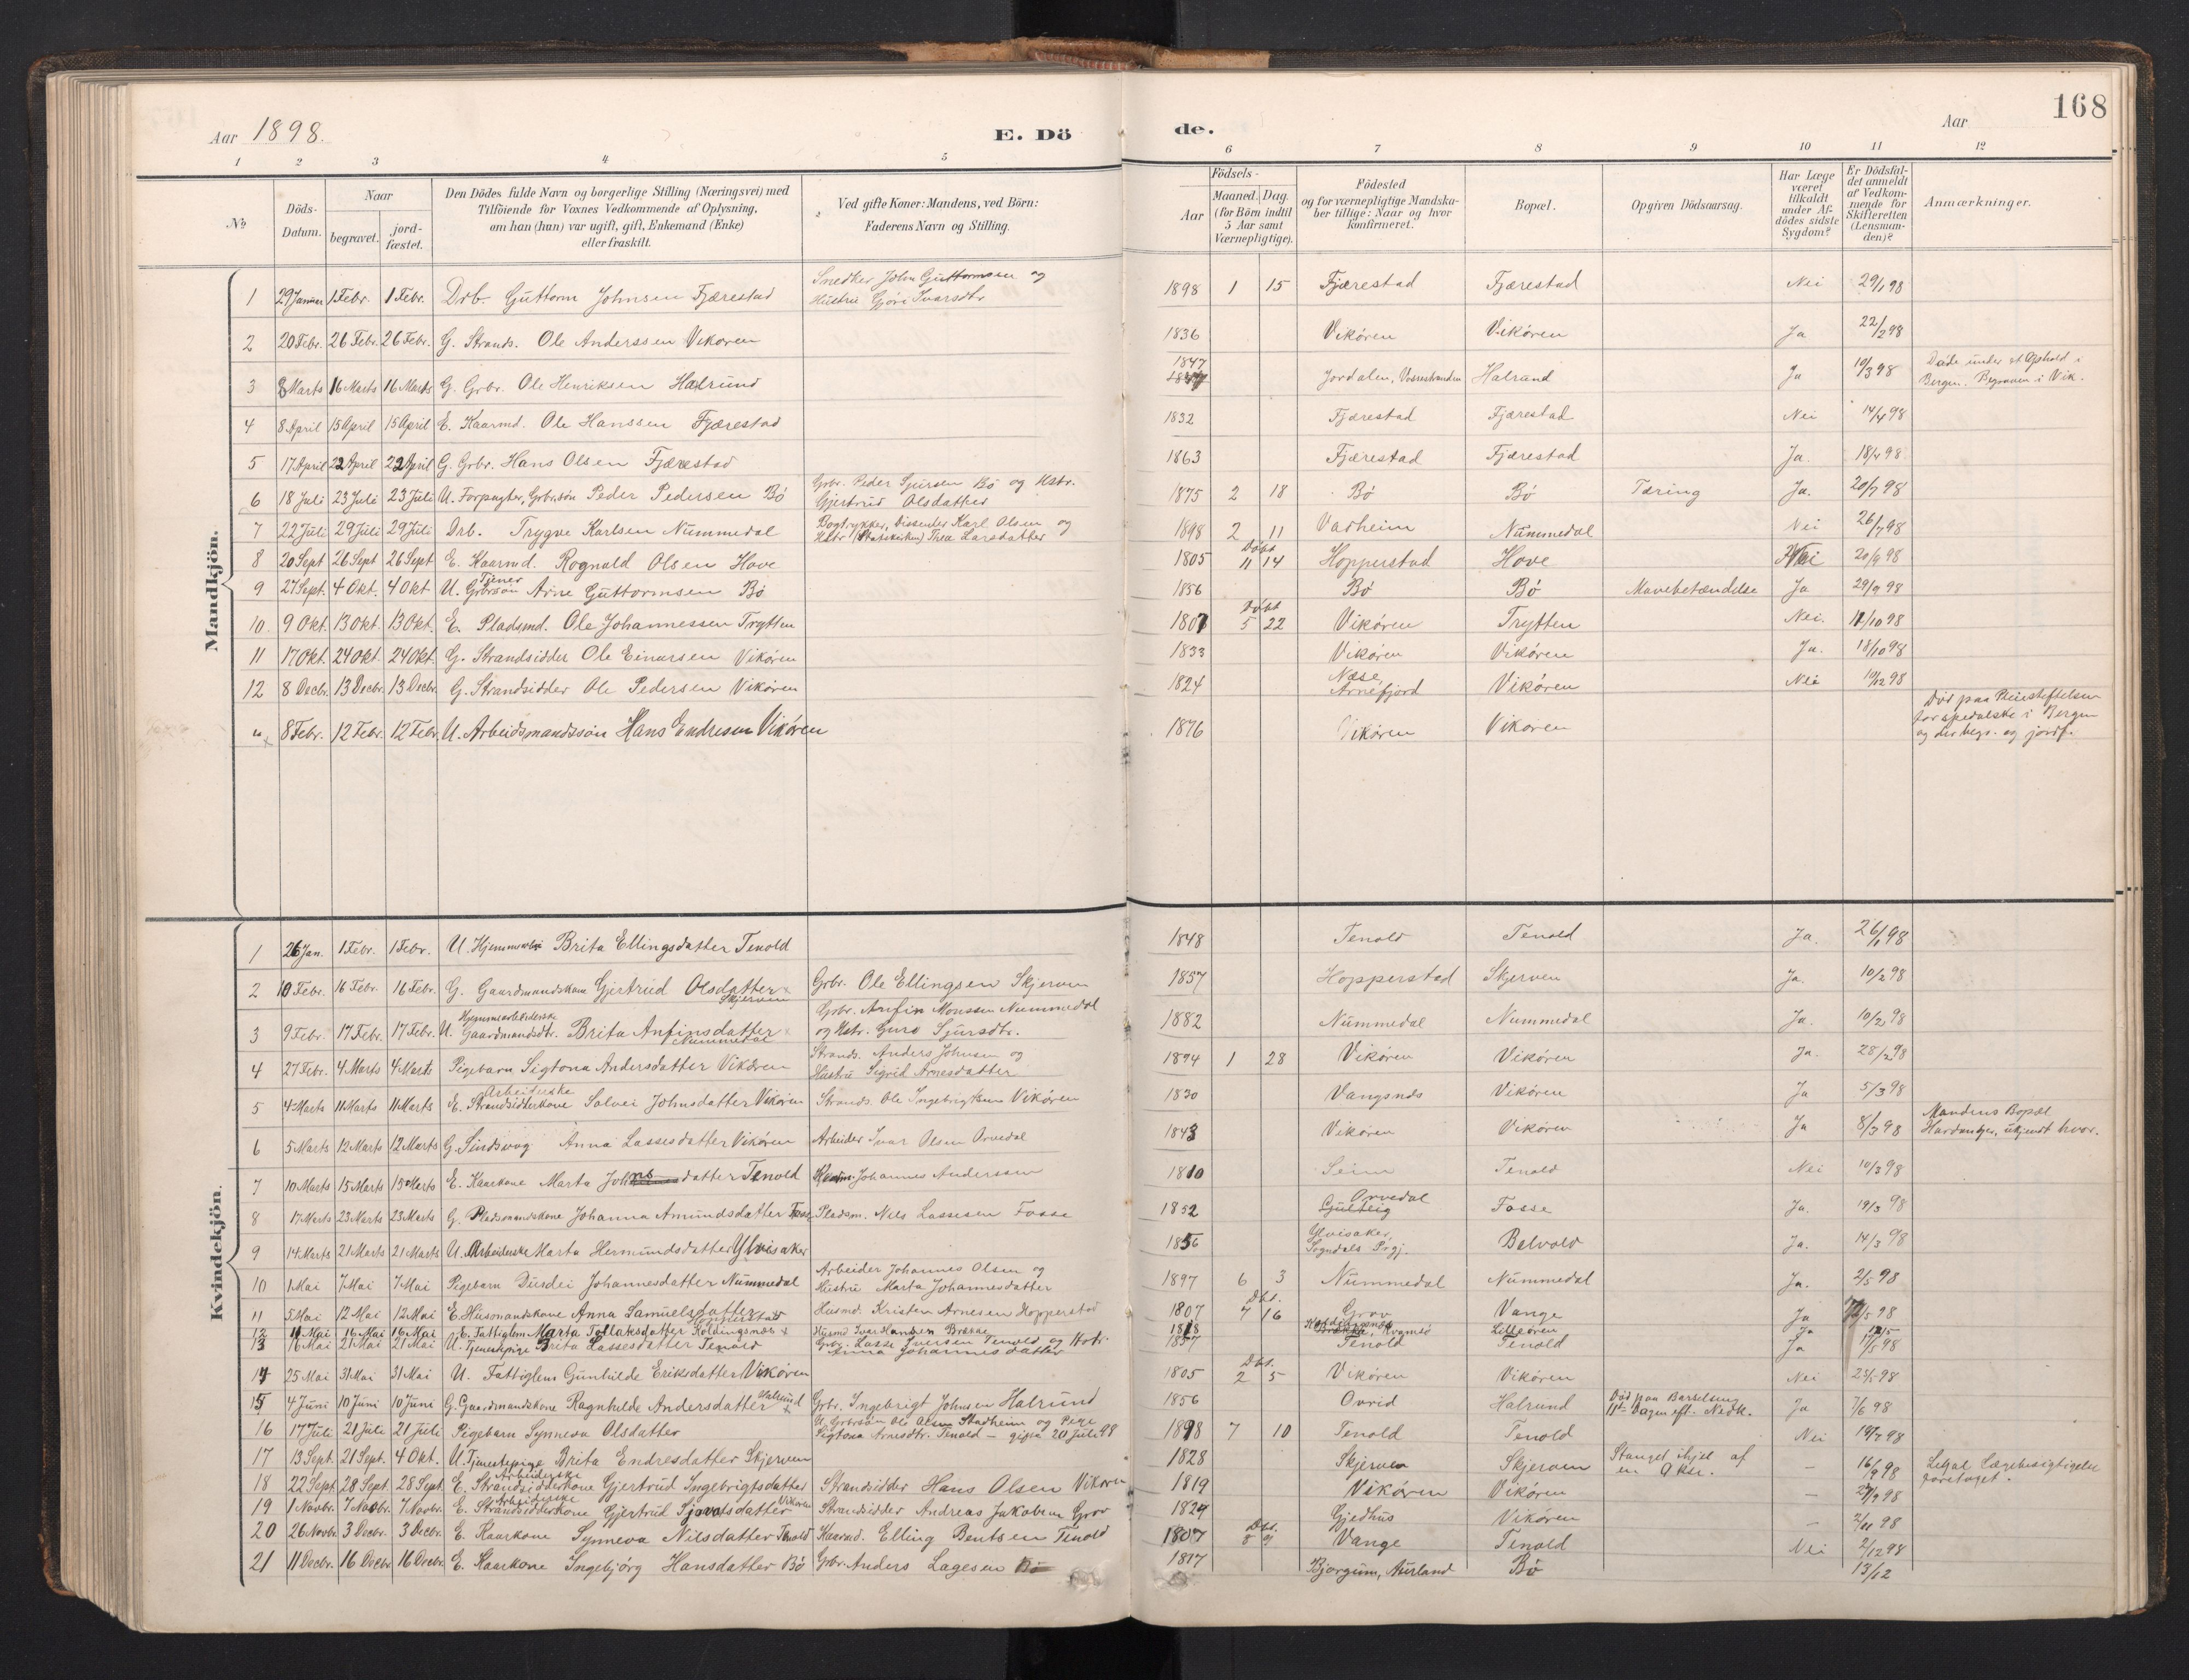 168
Aar 1898. E. Dö de. Aar
1 2 3 4 5 6 7 8 9 10 11 12
No
Döds-Datum.
Naar begravet. jordfæstet.
Den Dödes fulde Navn og borgerlige Stilling (Næringsvei) med Tilföiende for Voxnes Vedkommende af Oplysning, om han (hun) var ugift, gift, Enkemand (Enke) eller fraskilt.
Ved gifte Koner: Mandens, ved Börn: Faderens Navn og Stilling.
Födsels-
Aar
Maaned. Dag. (for Börn indtil 5 Aar samt Værnepligtige).
Födested og for værnepligtige Mandskaber tillige: Naar og hvor konfirmeret.
Bopæl.
Opgiven Dödsaarsag.
Har Læge været tilkaldt under Afdödes sidste Sygdom?
Er Dödsfaldet anmeldt af Vedkommende for Skifteretten (Lensmanden)?
Anmærkninger.
Mandkjön.
1 29 Januar 1 Febr. 1 Febr. Drb. Guttorm Johnsen Fjærestad Snedker John Guttormsen og Hustru Gjöri Ivarsdtr 1898 1 15 Fjærestad Fjærestad Nei 29/1 98
2 20 Febr. 26 Febr. 26 Febr. G. Strands. Ole Anderssen Vikøren 1836 Vikøren Vikøren Ja 22/2 98
3 8 Marts 16 Marts 16 Marts G. Grbr. Ole Henriksen Halrund 1847 Jordalen, Vossestranden Halrund Ja 10/3 98 Døde under et Ophold i Bergen. Begraven i Vik.
4 8 April 15 April 15 April E. Kaarmd. Ole Hanssen Fjærestad 1832 Fjærestad Fjærestad Nei 14/4 98
5 17 April 22 April 22 April G. Grbr. Hans Olsen Fjærestad 1863 Fjærestad Fjærestad Ja. 18/4 98
6 18 Juli 23 Juli 23 Juli U. Forpagter, Grbr.søn Peder Pedersen Bø Grbr. Peder Sjursen Bø og Hstr. Gjertrud Olsdatter 1875 2 18 Bø Bø Tæring Ja. 20/7 98
7 22 Juli 29 Juli 29 Juli Drb. Trygve Karlsen Nummedal Bogtrykker, Dissenter Karl Olsen og Hstr (Statskirken) Thea Larsdatter 1898 2 11 Vadheim Nummedal Nei 26/7 98
8 20 Sept 26 Sept 26 Sept E. Kaarmd. Rognald Olsen Hove 1805 Døbt 11 14 Hopperstad Hove Nei 20/9 98
9 27 Sept. 4 Okt. 4 Okt U. Tjener Grbrsøn Arne Guttormsen Bø 1856 Bø Bø Mavebetændelse Ja 29/9 98
10. 9 Okt. 13 Okt 13 Okt. E. Pladsmd. Ole Johannessen Trytten 1807 Døbt 5 22 Vikøren Trytten Nei. 11/10 98
11 17 Okt. 24 Okt. 24 Okt. G. Strandsidder Ole Einarsen Vikøren 1833 Vikøren Vikøren Ja. 18/10 98
12 8 Decbr. 13 Decbr. 13 Decbr. G. Strandsidder Ole Pedersen Vikøren 1824 Næse, Arnefjord Vikøren Nei 10/12 98
8 Febr. 12 Febr. 12 Febr. U. Arbeidsmandssøn Hans Endresen Vikøren 1876 Vikøren Vikøren Død paa Pleiestiftelsen for spedalske i Bergen og der begr. og jordf.
Kvindekjön.
1 26 Jan. 1 Febr. 1 Febr. U. Brita Ellingsdatter Tenold 1848 Tenold Tenold Ja. 26/1 98
2 10 Febr. 16 Febr. 16 Febr. G. Gaardmandskone Gjertrud Olsdatter Skjerven Grbr. Ole Ellingsen Skjerven 1857 Hopperstad Skjerven Ja. 10/2 98
3 9 Febr. 17 Febr. 17 Febr. U. Hjemmearbeiderske Gaardmandsdtr. Brita Anfinsdatter Nummedal Grbr. Anfin Monssen Nummedal og Hstr. Guro Sjursdtr. 1882 Nummedal Nummedal Ja. 10/2 98
4 27 Febr. 4 Marts 4 Marts Pigebarn Sigtona Andersdatter Vikøren Strands. Anders Johnsen og Hustru Sigrid Arnesdatter 1894 1 28 Vikøren Vikøren Ja. 28/2 98
5 4 Marts 11 Marts 11 Marts E. Arbeiderske Strandsidderkone Solvei Johnsdatter Vikøren Strands. Ole Ingebrigtsen Vikøren 1830 Vangsnæs Vikøren Ja 5/3 98
6 5 Marts 12 Marts 12 Marts G. Sindssvag Anna Lassesdatter Vikøren Arbeider Ivar Olsen Orvedal 1843 Vikøren Vikøren Ja 8/3 98 Mandens Bopæl Hardanger, ukjendt hvor.
7 10 Marts 15 Marts 15 Marts E. Kaarkone Marta Johnsdatter Tenold Johannes Anderssen 1810 Seim Tenold Nei 10/3 98
8 17 Marts 23 Marts 23 Marts G. Pladsmandskone Johanna Amundsdatter Fosse Pladsm. Nils Lassesen Fosse 1852 Orvedal Fosse Ja. 19/3 98
9 14 Marts 21 Marts 21 Marts U. Arbeiderske Marta Hermundsdatter Ylvisaker 1856 Ylvisaker, Sogndals Prgj. Bolvold Ja. 14/3 98
10 1 Mai 7 Mai 7 Mai Pigebarn Durdei Johannesdatter Nummedal Arbeider Johannes Olsen og Hustru Marta Johannesdatter 1897 6 3 Nummedal Nummedal Ja. 2/5 98
11 5 Mai 12 Mai 12 Mai E. Husmandskone Anna Samuelsdatter Hopperstad Husmd. Kristen Arnesen Hopperstad 1807 Dbt. 7 16 Grov Vange Ja
12 11 Mai 16 Mai 16 Mai E. Fattiglem Marta Tollaksdatter Koldingsnæs Husmd Ivar Hansen Brekke 1818 Lilleøren Ja 12/5
13 16 Mai 21 Mai 21 Mai U. Tjenestepige Brita Lassesdatter Tenold Grbr. Lasse Iversen Tenold og Hstr. Anna Johannesdatter 1857 Tenold Tenold Ja 17/5 98
14 25 Mai 31 Mai 31 Mai U. Fattiglem Gunhilde Eriksdatter Vikøren 1805 Dbt. 2 5 Vikøren Vikøren Nei
15 4 Juni 10 Juni 10 Juni G. Gaardmandskone Ragnhilde Andersdatter Halrund Grbr. Ingebrigt Johnsen Halrund 1856 Ovrid Halrund Død paa Barselseng 11te Dagen eft. Nedk. Ja 7/6 98
16 17 Juli 21 Juli 21 Juli Pigebarn Synneva Olsdatter U. Grbrsøn Ole Olsen Stadheim og Pige Sigtona Arnesdtr. Tenold – gifta 20 Juli 98 1898 7 10 Tenold Tenold Nei 19/7 98
17 13 Sept. 21 Sept. 4 Okt. U. Tjenestepige Brita Endresdatter Skjerven 1828 Skjerven Skjerven Stanget ihjel af en Okse. – 16/9 98 Legal Lægebesigtigelse foretaget.
18 22 Sept. 28 Sept. 28 Sept. E. Arbeiderske Strandsidderkone Gjertrud Ingebrigtsdatter Strandsidder Hans Olsen Vikøren 1819 Vikøren Vikøren –
19 1 Novbr. 7 Novbr. 7 Novbr. E. Arbeiderske Strandsidderkone Gjertrud Sjovatsdatter Vikøren Strandsidder Andreas Jakobsen Grov 1824 Gjedhus Vikøren – 2/11 98
20 26 Novbr. 3 Decbr. 3 Decbr. E. Kaarkone Synneva Nilsdatter Tenold Kaarmd. Elling Bentsen Tenold 1807 Dbt. 8 9 Vange Tenold Nei 2/12 98
21 11 Decbr. 16 Decbr. 16 Decbr. E. Kaarkone Ingebjörg Hansdatter Bø Grbr. Anders Lagesen Bø 1817 Bjorgum, Aurland Bø 13/12